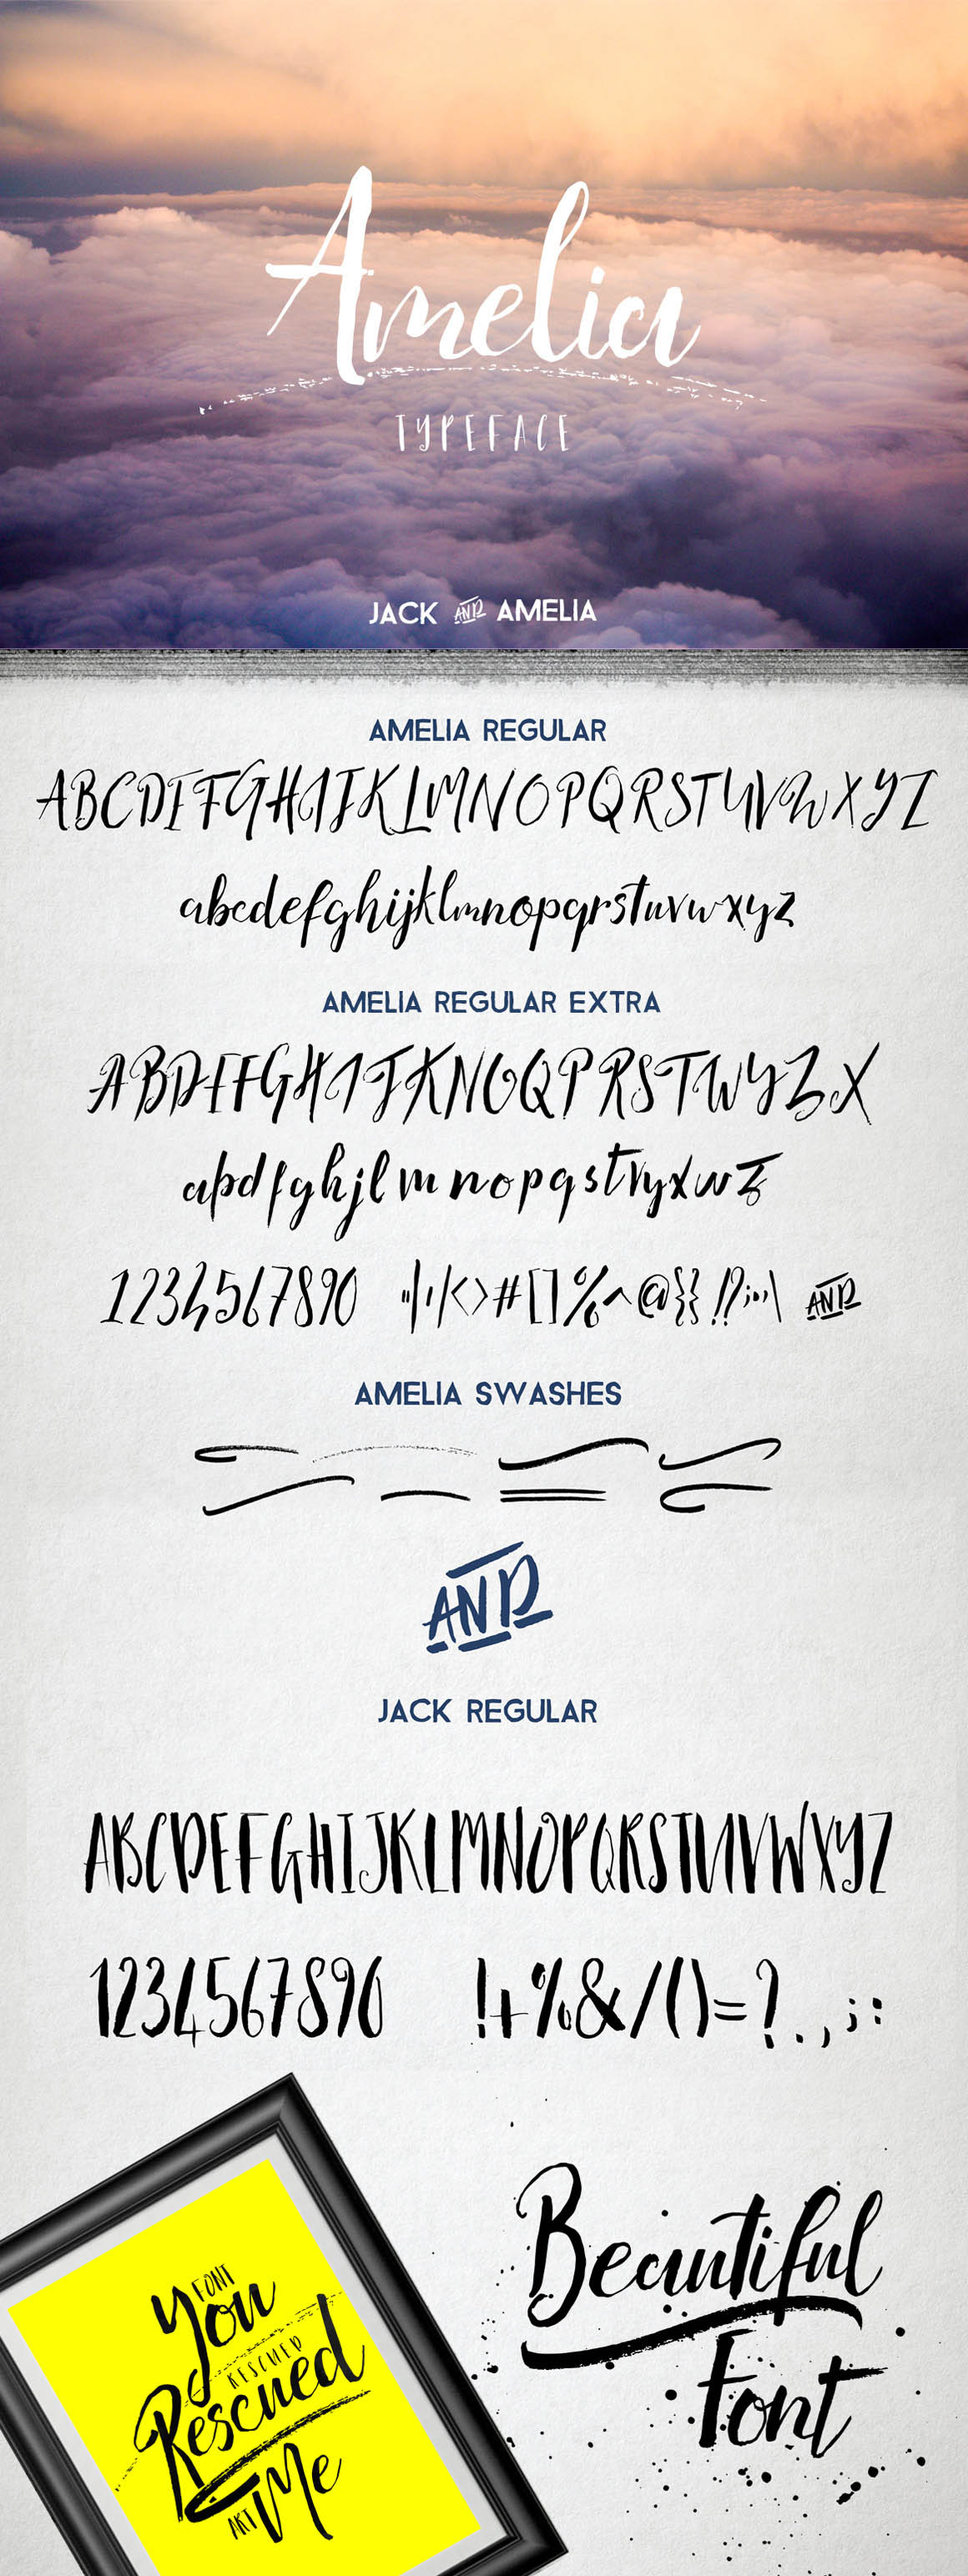 Amelia
TYPEFACE
JACK AND AMELIA
AMELIA REGULAR
ABCDEFGHIJKLMNOPQRSTUVWXYZ
abcdefghijklmnopqrstuvwxyz
AMELIA REGULAR EXTRA
ABDEFGHIJKNOQPRSTWYZX
abdfghjlmnopqstvyxwz
1234567890 "|'/<>#[]%^@{}!?;:,\ AND
AMELIA SWASHES
AND
JACK REGULAR
ABCDEFGHIJKLMNOPQRSTUVWXYZ
1234567890 !+%&/()=?.,;:
FONT
You
RESCUED
Rescued
ART Me
Beautiful
Font